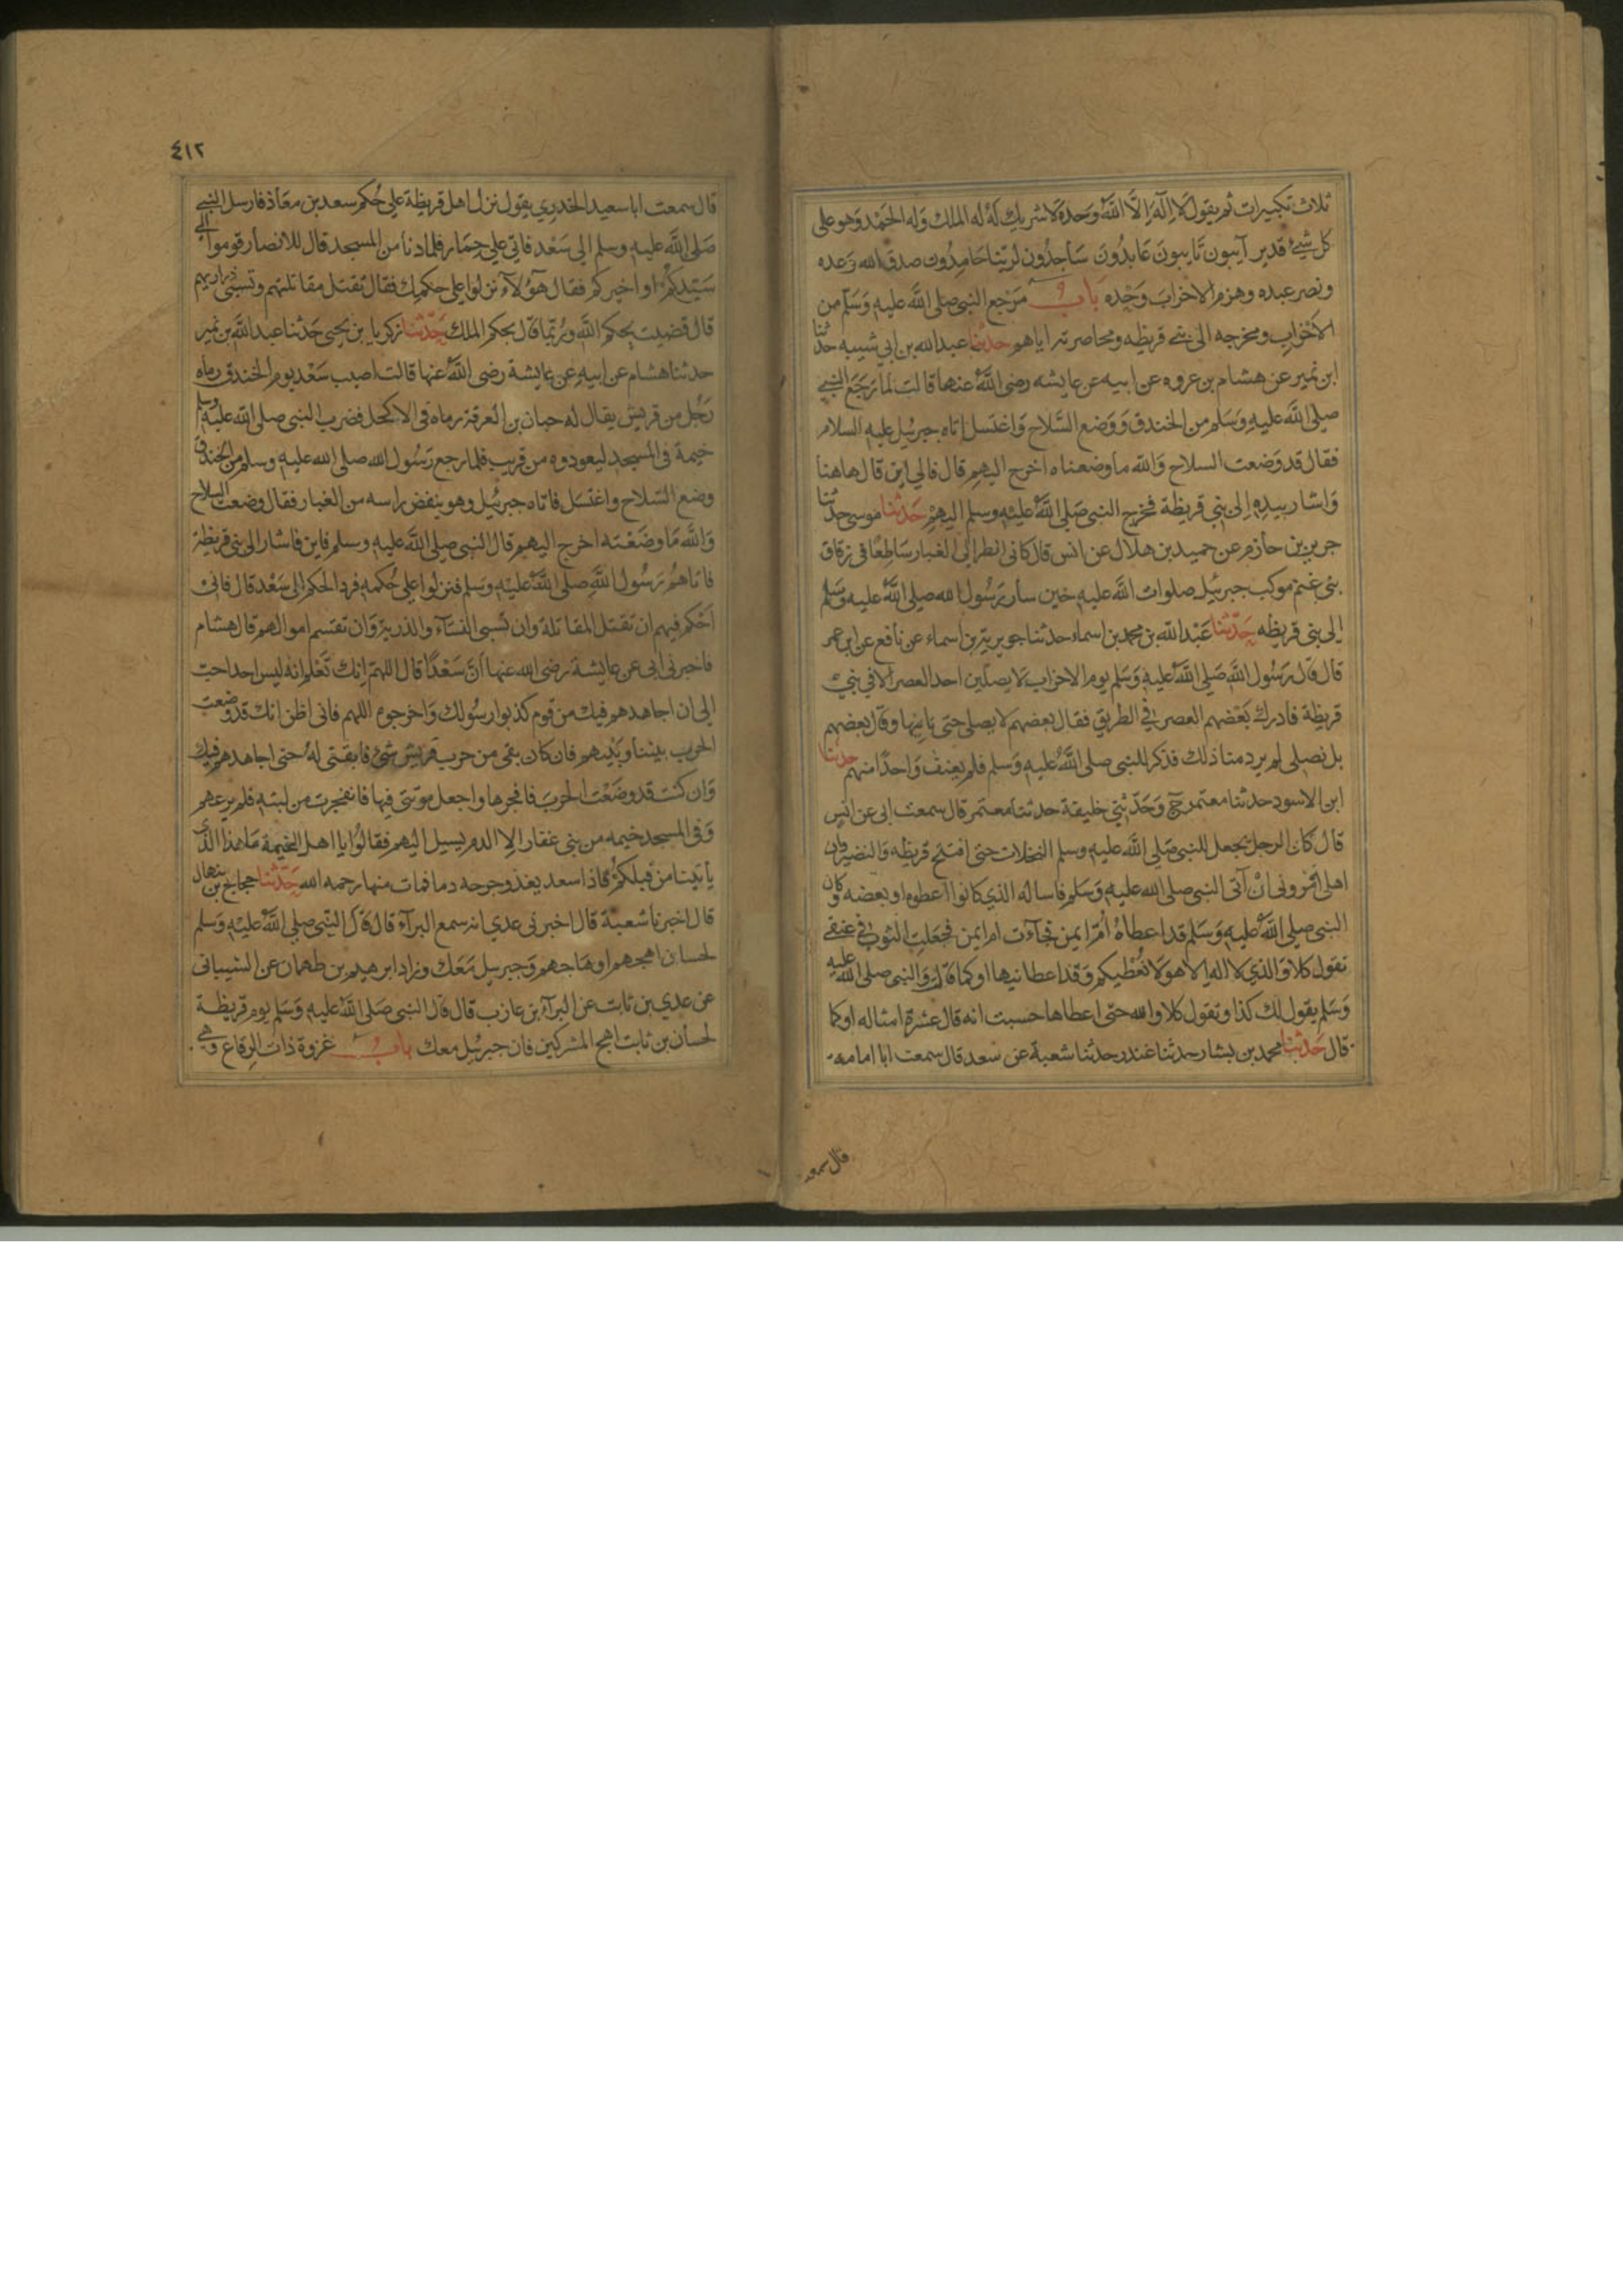 ثلاث تكبيرات ثم يقول لا اله الا الله وحده لا شريك له له الملك وله الحمد وهو على
كل شئ قدير آيبون تايبون عابدون ساجدون لربنا حامدون صدق الله وعده
ونصر عبده وهزم الاحزاب وحده باب مرجع النبي صلى الله عليه وسلم من
الاحزاب ومخرجه الى بني قريظه ومحاصرته اياهم حدثنا عبد الله بن ابي شيبه حدثنا
ابن نمير عن هشام بن عروه عن ابيه عن عايشه رضي الله عنها قالت لما رجع النبي
صلى الله عليه وسلم من الخندق ووضع السلاح واغتسل اتاه جبرئيل عليه السلام
فقال قد وضعت السلاح والله ما وضعناه اخرج اليهم قال فالى اين قال هاهنا
واشار بيده الى بني قريظة فخرج النبي صلى الله عليه وسلم اليهم حدثنا موسى حدثنا
جرير بن حازم عن حميد بن هلال عن انس قال كاني انظر الى الغبار ساطعا في زقاق
بني غنم موكب جبرئيل صلوات الله عليه حين سار رسول الله صلى الله عليه وسلم
الى بني قريظه حدثنا عبد الله بن محمد بن اسماء حدثنا جويرية بن اسماء عن نافع عن ابن عمر
قال قال رسول الله صلى الله عليه وسلم يوم الاحزاب لا يصلين احد العصر الا في بني
قريظة فادرك بعضهم العصر في الطريق فقال بعضهم لا يصلي حتى ياتيها وقال بعضهم
بل نصلي لم يرد منا ذلك فذكر للنبي صلى الله عليه وسلم فلم يعنف واحدا منهم حدثنا
ابن الاسود حدثنا معتمر ح وحدثني خليفة حدثنا معتمر قال سمعت ابي عن انس
قال كان الرجل يجعل للنبي صلى الله عليه وسلم النخلات حتى افتتح قريظه والنضير وان
اهلي امروني ان آتي النبي صلى الله عليه وسلم فاساله الذي كانوا اعطوه او بعضه وكان
النبي صلى الله عليه وسلم قد اعطاه ام ايمن فجاءت ام ايمن فجعلت الثوب في عنقي
تقول كلا والذي لا اله الا هو لا نعطيكم وقد اعطانيها او كما قالت والنبي صلى الله عليه
وسلم يقول لك كذا وتقول كلا والله حتى اعطاها حسبت انه قال عشرة امثاله او كما
قال حدثنا محمد بن بشار حدثنا غندر حدثنا شعبة عن سعد قال سمعت ابا امامه
قال سمعت
٤١٢
قال سمعت ابا سعيد الخدري يقول نزل اهل قريظة على حكم سعد بن معاذ فارسل النبي
صلى الله عليه وسلم الى سعد فاتى على حمار فلما دنا من المسجد قال للانصار قوموا الى
سيدكم او اخيركم فقال هؤلآء نزلوا على حكمك فقال تقتل مقاتلتهم وتسبي ذراريهم
قال قضيت بحكم الله وربما قال بحكم الملك حدثنا زكريا بن يحيى حدثنا عبد الله بن نمير
حدثنا هشام عن ابيه عن عايشة رضي الله عنها قالت اصيب سعد يوم الخندق رماه
رجل من قريش يقال له حبان بن العرقة رماه في الاكحل فضرب النبي صلى الله عليه وسلم
خيمة في المسجد ليعودوه من قريب فلما رجع رسول الله صلى الله عليه وسلم من الخندق
وضع السلاح واغتسل فاتاه جبرئيل وهو ينفض راسه من الغبار فقال وضعت السلاح
والله ما وضعته اخرج اليهم قال النبي صلى الله عليه وسلم فاين فاشار الى بني قريظة
فاتاهم رسول الله صلى الله عليه وسلم فنزلوا على حكمه فرد الحكم الى سعد قال فاني
احكم فيهم ان تقتل المقاتلة وان تسبى النساء والذرية وان تقتسم اموالهم قال هشام
فاخبرني ابي عن عايشة رضي الله عنها ان سعدا قال اللهم انك تعلم انه ليس احد احب
الى ان اجاهدهم فيك من قوم كذبوا رسولك واخرجوه اللهم فاني اظن انك قد وضعت
الحرب بيننا وبينهم فان كان بقي من حرب قريش شئ فابقني له حتى اجاهدهم فيك
وان كنت قد وضعت الحرب فافجرها واجعل موتتي فيها فانفجرت من لبته فلم يرعهم
وفي المسجد خيمه من بني غفار الا الدم يسيل اليهم فقالوا يا اهل الخيمة ما هذا الذي
ياتينا من قبلكم فاذا سعد يغذو جرحه دما فمات منها رحمه الله حدثنا حجاج بن منهال
قال اخبرنا شعبة قال اخبرني عدي انه سمع البرآء قال قال النبي صلى الله عليه وسلم
لحسان اهجهم او هاجهم وجبريل معك وزاد ابرهيم بن طهمان عن الشيباني
عن عدي بن ثابت عن البرآء بن عازب قال قال النبي صلى الله عليه وسلم يوم قريظة
لحسان بن ثابت اهج المشركين فان جبرئيل معك باب غزوة ذات الرقاع وهي